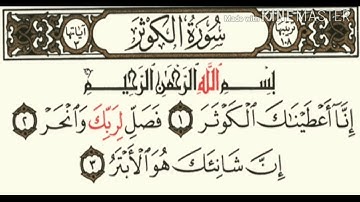 Made with KINEMASTER
ترتيبها ١٠٨ سُورَةُ الْكَوْثَرِ آياتها ٣
بِسْمِ اللَّهِ الرَّحْمَٰنِ الرَّحِيمِ
إِنَّا أَعْطَيْنَاكَ الْكَوْثَرَ ١ فَصَلِّ لِرَبِّكَ وَانْحَرْ ٢
إِنَّ شَانِئَكَ هُوَ الْأَبْتَرُ ٣